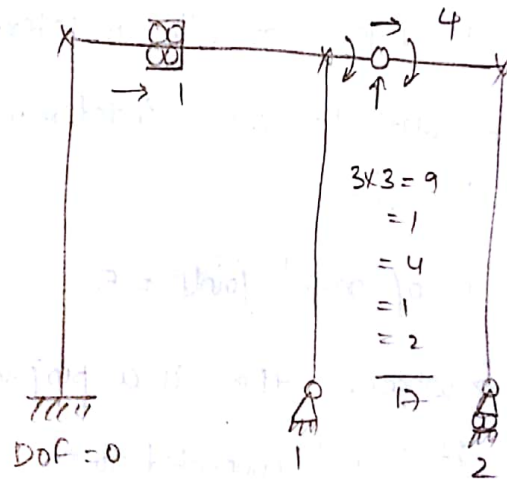 → 4
→ 1
3×3 = 9
= 1
= 4
= 1
= 2
17
DOF = 0
1
2